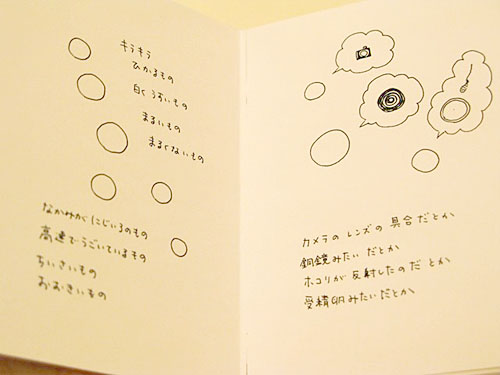 キラキラ
ひかるもの
白くうすいもの
まるいもの
まるくないもの
なかみがにじいろのもの
高速でうごいているもの
ちいさいもの
おおきいもの
カメラの レンズの 具合だとか
銅鏡みたいだとか
ホコリが 反射したのだ とか
受精卵みたいだとか